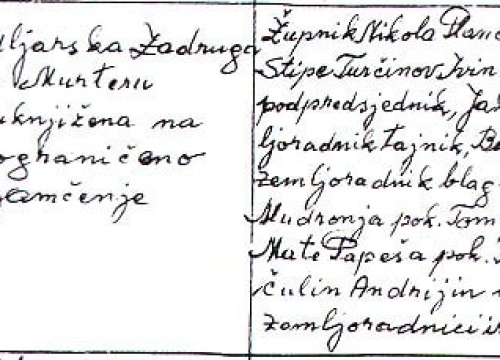 ljarska Zadruga
Murteru
uknjižena na
ograničeno
jamčenje
Župnik Nikola Planč
Stipe Turčinov Ivin
podpredsjednik, Ja
ljoradnik tajnik, B
zemljoradnik blag
Mudronja pok. Tom
Mate Papeša pok.
čulin Andrijin
zemljoradnici i